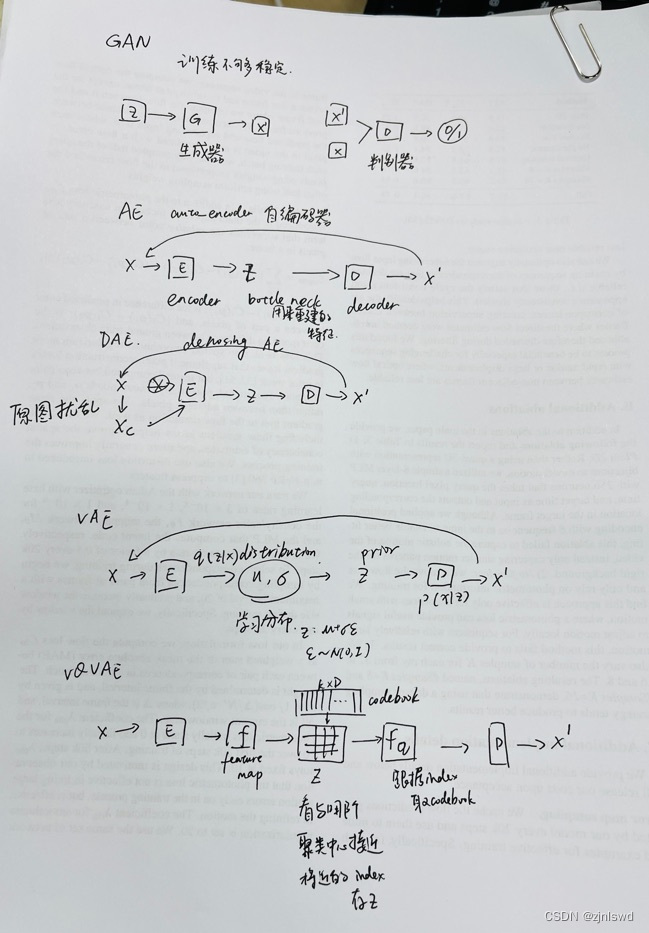 GAN
训练不够稳定.
Z → G → X'
生成器
X'
X
D → 0/1
判别器
AE auto_encoder 自编码器
X → E → Z → D → X'
encoder bottle neck decoder
用来重建的
特征.
DAE. denosing AE
X E → Z → D → X'
原图扰乱
Xc
VAE
q(z|x) distribution. prior
X → E → u, σ → Z → D → X'
P(x|z)
学习分布. z: u+σε
ε~N(0,I)
VQVAE
K×D
... codebook
X → E → f → → fq → D → X'
feature
map
Z
根据index
取codebook
看与哪个
聚类中心接近
将近的 index
存Z
CSDN @zjnlswd